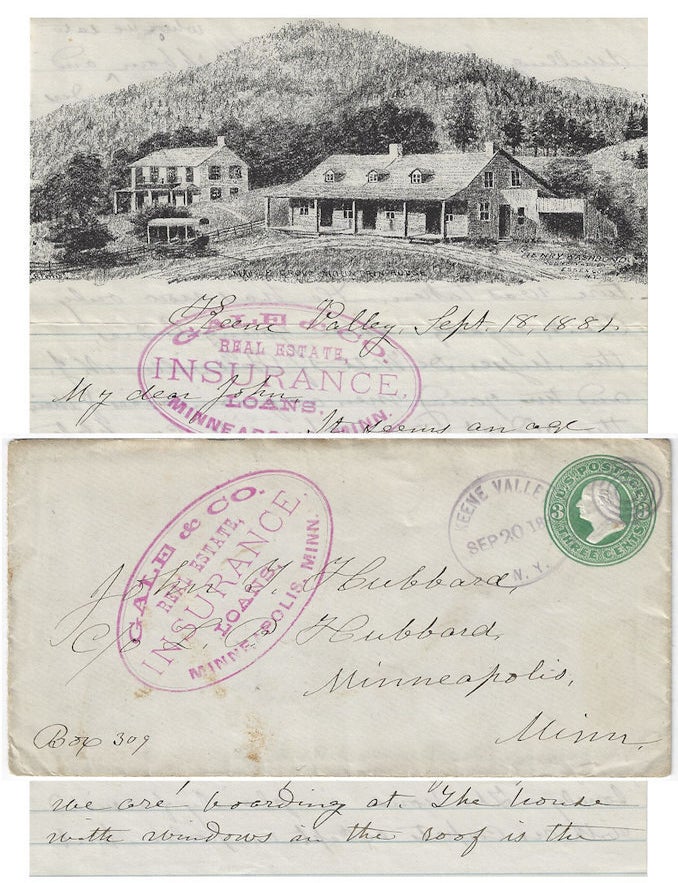 HENRY WASHBOND
ESSEX
Keene Valley, Sept. 18, 1881.
GALE & CO.
REAL ESTATE,
INSURANCE,
LOANS.
MINNEAPOLIS, MINN.
My dear John,
It seems an age
KEENE VALLEY
SEP 20 18
N. Y.
U.S. POSTAGE
3 3
THREE CENTS
GALE & CO.
REAL ESTATE,
INSURANCE,
LOANS.
MINNEAPOLIS, MINN.
John Hubbard,
c/o Hubbard,
Minneapolis,
Minn.
Box 309
we are boarding at. The house
with windows in the roof is the